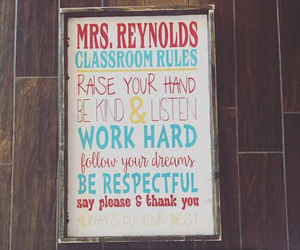 MRS. REYNOLDS
CLASSROOM RULES
RAISE YOUR HAND
BE KIND & LISTEN
WORK HARD
follow your dreams
BE RESPECTFUL
say please & thank you
ALWAYS DO YOUR BEST